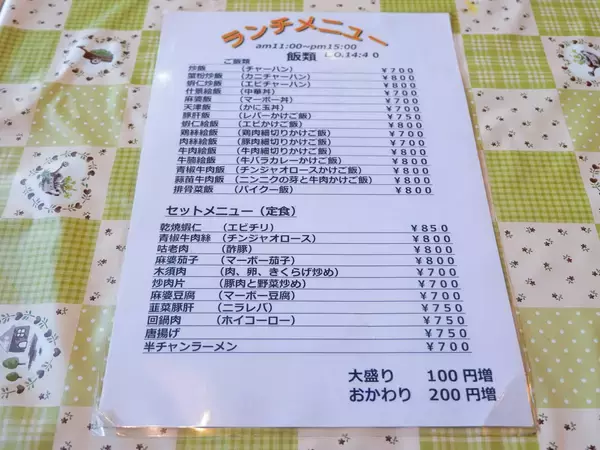 ランチメニュー
am11:00~pm15:00
飯類 L.O.14:40
ご飯類
炒飯 （チャーハン） ￥700
蟹粉炒飯 （カニチャーハン） ￥800
蝦仁炒飯 （エビチャーハン） ￥800
什景絵飯 （中華丼） ￥700
麻婆飯 （マーボー丼） ￥700
天津飯 （かに玉丼） ￥700
豚肝飯 （レバーかけご飯） ￥750
蝦仁絵飯 （エビかけご飯） ￥800
鶏絲絵飯 （鶏肉細切りかけご飯） ￥700
肉絲絵飯 （豚肉細切りかけご飯） ￥700
牛肉絵飯 （牛肉細切りかけご飯） ￥800
牛腩絵飯 （牛バラカレーかけご飯） ￥800
青椒牛肉飯 （チンジャオロースかけご飯） ￥800
蒜苗牛肉飯 （ニンニクの芽と牛肉かけご飯） ￥800
排骨菜飯 （パイクー飯） ￥800
セットメニュー（定食）
乾焼蝦仁 （エビチリ） ￥850
青椒牛肉絲 （チンジャオロース） ￥800
咕老肉 （酢豚） ￥800
麻婆茄子 （マーボー茄子） ￥800
木須肉 （肉、卵、きくらげ炒め） ￥700
炒肉片 （豚肉と野菜炒め） ￥700
麻婆豆腐 （マーボー豆腐） ￥700
韮菜豚肝 （ニラレバ） ￥750
回鍋肉 （ホイコーロー） ￥750
唐揚げ ￥750
半チャンラーメン ￥700
大盛り 100円増
おかわり 200円増